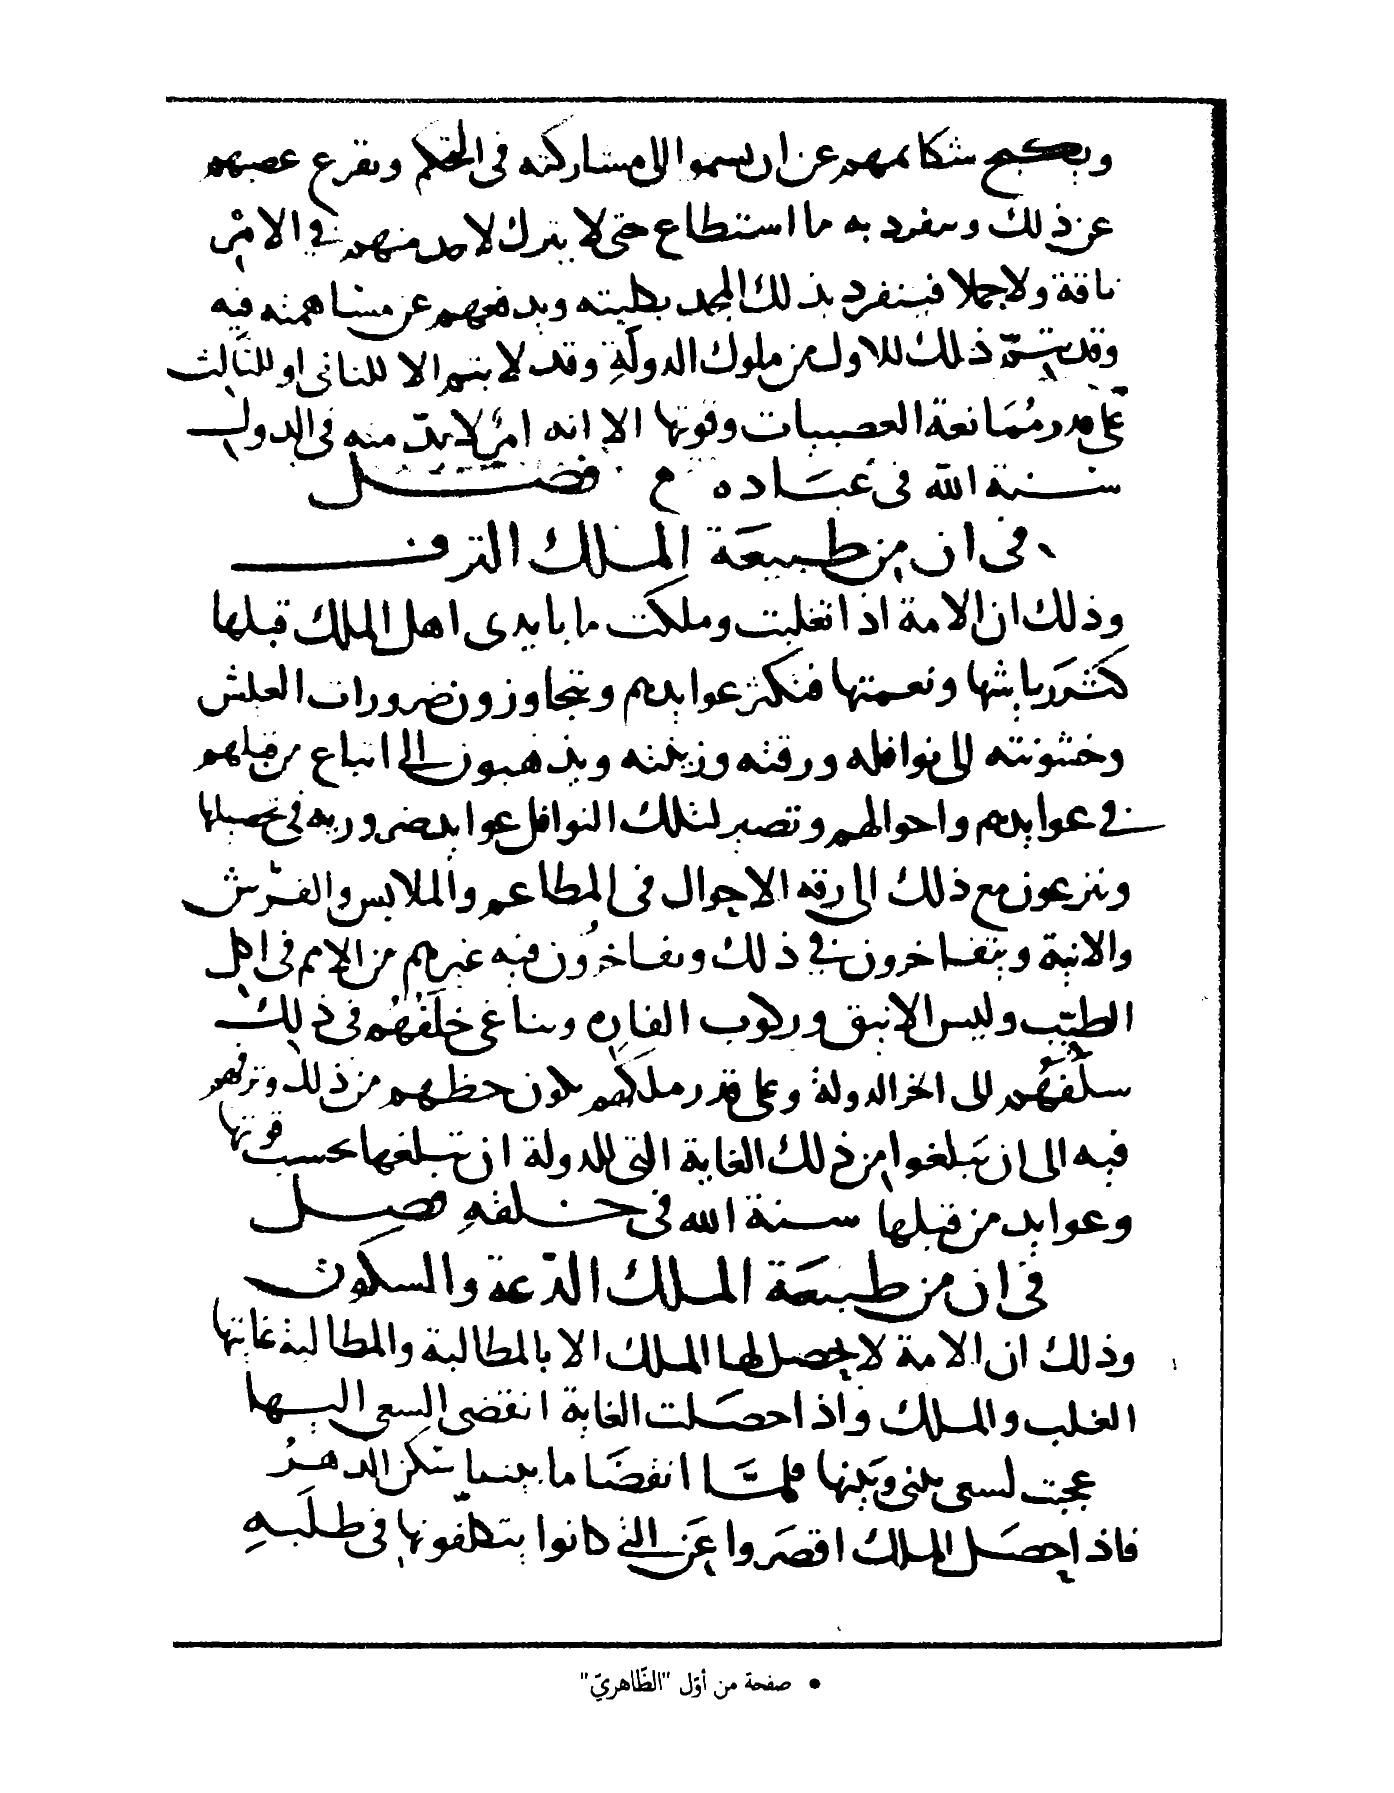 ويكبح شكائمهم عن ان يسموا الى مشاركته فى الحكم ويقرع عصبهم
عن ذلك وينفرد به ما استطاع حتى لا يترك لاحد منهم في الامْر
ناقة ولا جملا فينفرد بذلك المجد بكليته ويدفعهم عن مساهمته فيه
وقد يتمّ ذلك للاول من ملوك الدولةِ وقد لا يتم الا للثانى او للثالث
على قدر مُمَانعة العصبيات وقوتها الا انه امرٌ لا بدّ منه فى الدول
سنة الله فى عبَاده فصَل
فى ان من طبيعَة الملك الترف
وذلك ان الامة اذا تغلبت وملكت ما بايدى اهل الملك قبلها
كثرَ رياشها ونعمتها فتكثر عوايدهم ويتجاوزون ضرورات العيش
وخشونته الى نوافله ورقته وزينته ويذهبون الى اتباع من قبلهم
في عوايدهم واحوالهم وتصير لتلك النوافل عوايد ضرورية فى تحصيلها
وينزعون مع ذلك الى رقة الاحوال فى المطاعم والملابس والفرُش
والانية ويتفاخرون في ذلك ويفاخرُون فيه غيرهم من الامم فى اكل
الطيّب ولبس الانيق وركوب الفاره ويناغى خلَفُهُم فى ذلك
سلَفَهُم الى اخر الدولة وعلى قدر ملكهم يكون حظهم من ذلك وترفهم
فيه الى ان يَبلغوا من ذلك الغاية التى للدولة ان تبلغها بحسب قوتها
وعوايد من قبلها سنة الله فى خلقهِ فصل
فى ان من طبيعَة الملك الدّعة والسكون
وذلك ان الامة لا يحصل لها الملك الا بالمطالبة والمطالبة غايتها
الغلب والملك واذا حصَلت الغاية انقضى السعى اليها
عجبت لسعى الدهر بينى وبَينها فلمّا انقضَا ما بيننا سَكن الدهرُ
فاذا حصَل الملك اقصَروا عَن التي كانوا يتكلفونها فى طلَبهِ
• صفحة من أوّل "الظّاهريّ"